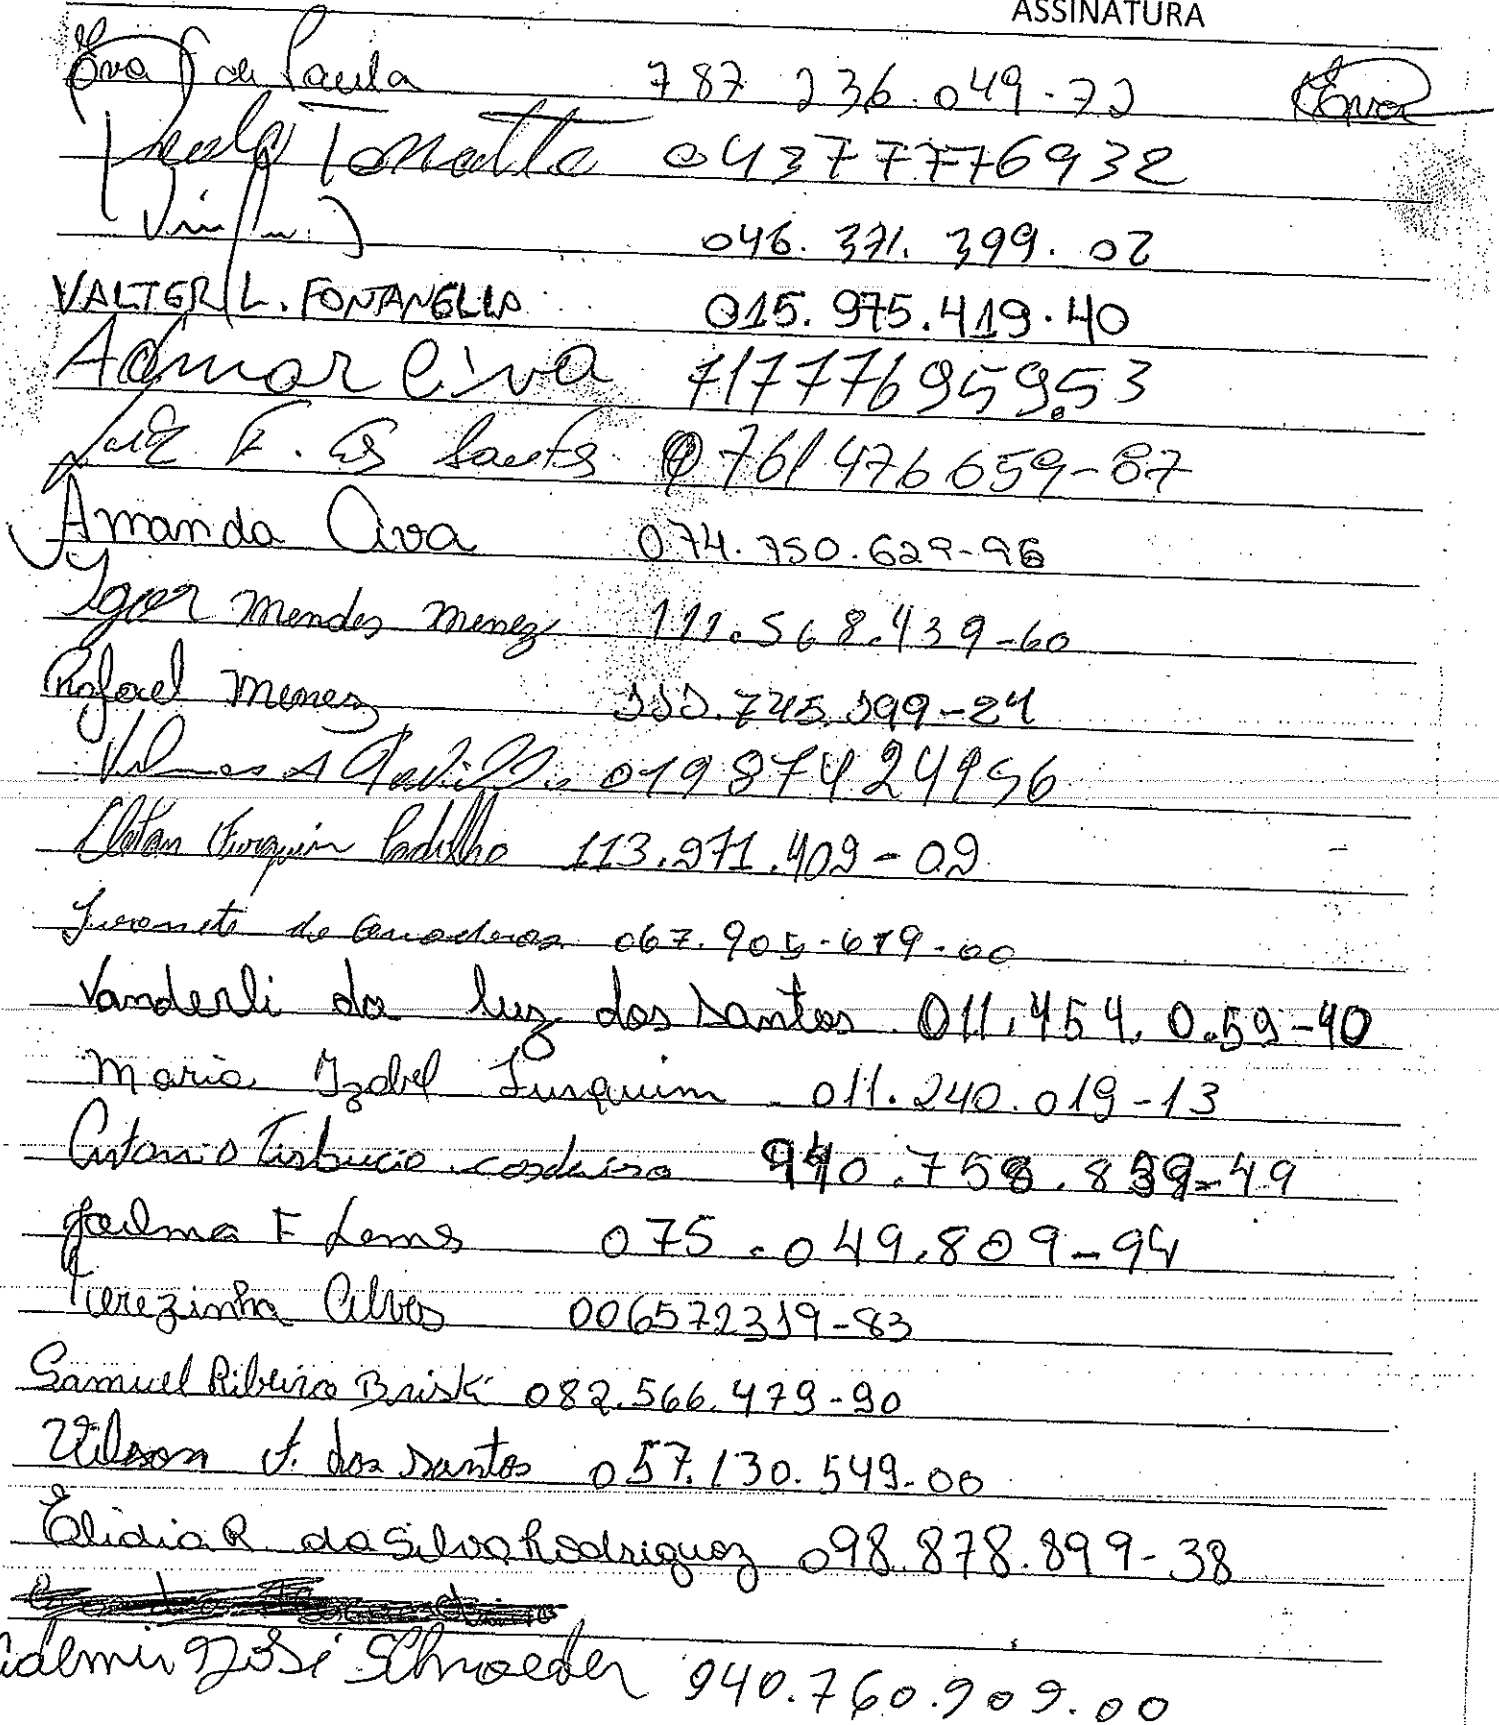 ASSINATURA
Eva F de Paula 787 236.049-72 Eva
Tonatto 04377776932
046.371.399.02
VALTER L. FONTANELLA 015.975.419.40
Admar Civa 71777695953
Luiz F. dos Santos 0761476659-87
Amanda Civa 074.750.629-96
Ygor Mendes Menez 111.568.439-60
Rafael Menez 111.745.199-24
01987424956
Furquim Padilha 113.971.409-09
de 067.905.679-00
Vanderli da luz dos Santos 011.454.059-40
Maria Izabel Furquim 011.240.019-13
Antonio Tisbucio cordeiro 940.758.839-49
Jailma F Lemes 075.049.809-94
Terezinha Alves 006572319-83
Samuel Ribeiro Briski 082.566.479-90
Wilson J. dos Santos 057.130.549-00
Elidia R da Silva Rodriguez 098.878.899-38
ademir José Schroeder 940.760.909.00